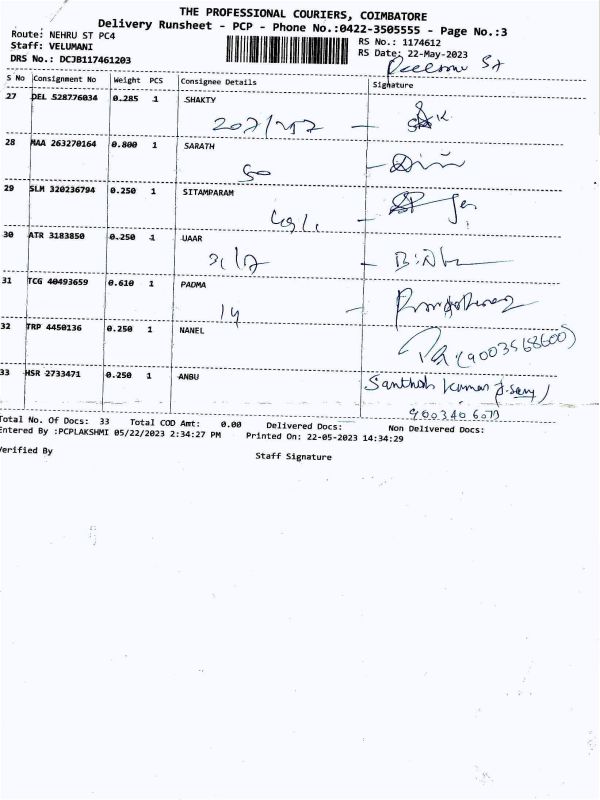 THE PROFESSIONAL COURIERS, COIMBATORE
Delivery Runsheet - PCP - Phone No.:0422-3505555 - Page No.:3
Route: NEHRU ST PC4
RS No.: 1174612
Staff: VELUMANI
RS Date: 22-May-2023
DRS No.: DCJB117461203
S No Consignment No Weight PCS Consignee Details Signature
27 DEL 528776034 0.285 1 SHAKTY
28 MAA 263270164 0.800 1 SARATH
50
29 SLM 320236794 0.250 1 SITAMPARAM
30 ATR 3183850 0.250 1 UAAR
31 TCG 40493659 0.610 1 PADMA
14
32 TRP 4450136 0.250 1 NANEL
(9003568600)
33 HSR 2733471 0.250 1 ANBU
Santhosh Kumar
Total No. Of Docs: 33 Total COD Amt: 0.00 Delivered Docs: Non Delivered Docs:
Entered By :PCPLAKSHMI 05/22/2023 2:34:27 PM Printed On: 22-05-2023 14:34:29
Verified By
Staff Signature